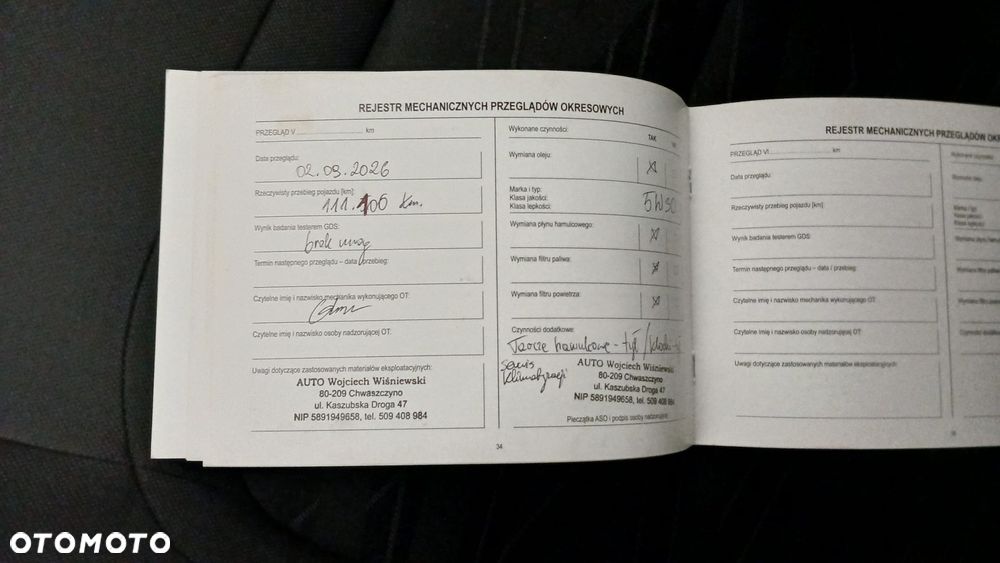 REJESTR MECHANICZNYCH PRZEGLĄDÓW OKRESOWYCH
PRZEGLĄD V ........................ km
Data przeglądu:
02.09.2026
Rzeczywisty przebieg pojazdu [km]:
111.100 km.
Wynik badania testerem GDS:
brak uwag
Termin następnego przeglądu – data / przebieg:
Czytelne imię i nazwisko mechanika wykonującego OT:
Czytelne imię i nazwisko osoby nadzorującej OT:
Uwagi dotyczące zastosowanych materiałów eksploatacyjnych:
AUTO Wojciech Wiśniewski
80-209 Chwaszczyno
ul. Kaszubska Droga 47
NIP 5891949658, tel. 509 408 984
Wykonane czynności:
TAK
Wymiana oleju:
Marka i typ:
Klasa jakości:
Klasa lepkości:
5W30
Wymiana płynu hamulcowego:
Wymiana filtru paliwa:
Wymiana filtru powietrza:
Czynności dodatkowe:
Tarcze hamulcowe - tył / klocki -
Serwis
klimatyzacji
AUTO Wojciech Wiśniewski
80-209 Chwaszczyno
ul. Kaszubska Droga 47
NIP 5891949658, tel. 509 408 984
Pieczątka ASO i podpis osoby nadzorującej
34
REJESTR MECHANICZNYCH PRZEGLĄDÓW
PRZEGLĄD VI ........................ km
Data przeglądu:
Rzeczywisty przebieg pojazdu [km]:
Wynik badania testerem GDS:
Termin następnego przeglądu – data / przebieg:
Czytelne imię i nazwisko mechanika wykonującego OT:
Czytelne imię i nazwisko osoby nadzorującej OT:
Uwagi dotyczące zastosowanych materiałów eksploatacyjnych:
OTOMOTO